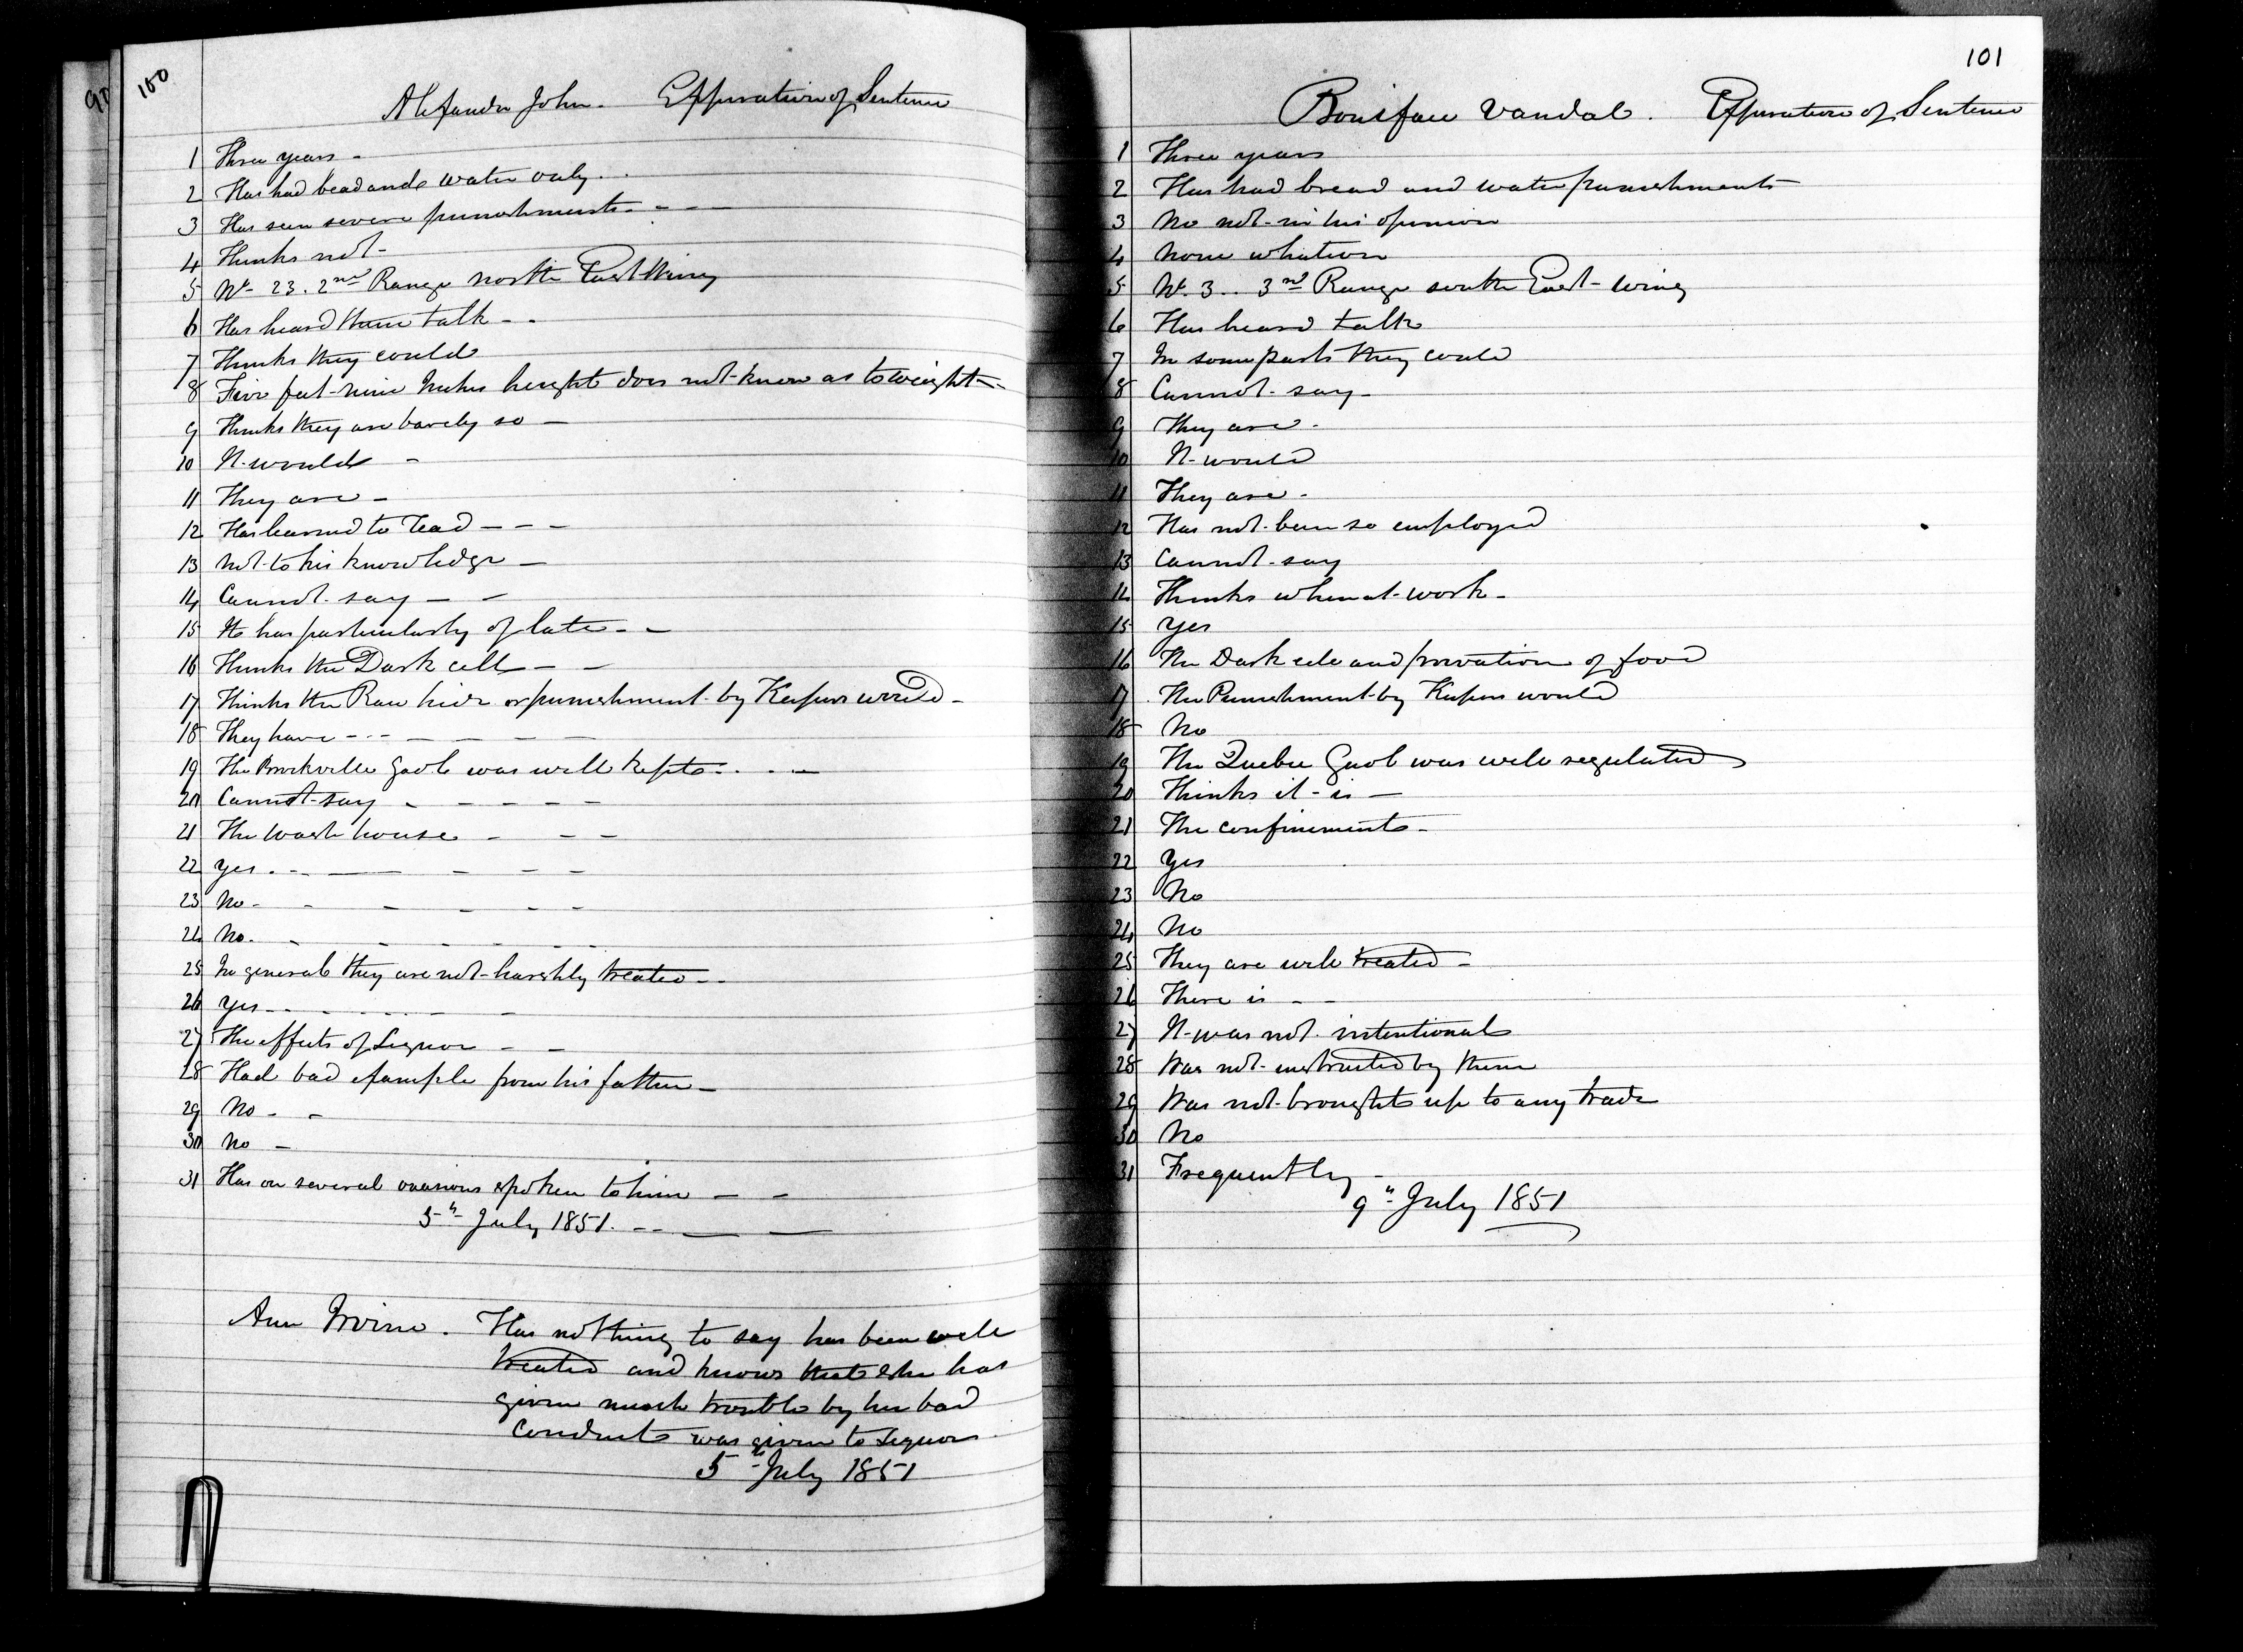 100
Alexander John. Expiration of Sentence
1 Three years -
2 Has had bead and water only..
3 Has seen severe punishments - - -
4 Thinks not -
5 No 23. 2nd Range north East Wing
6 Has heard them talk - -
7 Thinks they could
8 Five feet nine Inches height does not know as to weight -
9 Thinks they are barely so -
10 It would -
11 They are -
12 Has learned to read - - -
13 not to his knowledge -
14 Cannot say - -
15 It has particularly of late - -
16 Thinks the Dark cell - -
17 Thinks the Raw hide or punishment by Keepers would -
18 They have - - - - - - -
19 The Brockville Gaol was well kept. . . -
20 Cannot say - - - - -
21 The wash house - - -
22 Yes . - - - - - -
23 No - - - - - -
24 No. - - - - - -
25 In general they are not harshly treated - -
26 Yes - - . . . . - -
27 The effects of Liquor - -
28 Had bad example from his father -
29 No - -
30 No -
31 Has on several occasions spoken to him - -
5th July 1851. - - - -
Ann Irvine. Has nothing to say has been well
treated and knows that she has
given much trouble by her bad
conduct was given to Liquor.
5th July 1851
101
Boniface Vandal. Expiration of Sentence
1 Three years
2 Has had bread and water punishments
3 No not in his opinion
4 None whatever
5 No 3.. 3rd Range south East wing
6 Has heard talk
7 In some parts they could
8 Cannot say -
9 They are -
10 It would
11 They are -
12 Has not been so employed
13 Cannot say
14 Thinks when at work -
15 Yes
16 The Dark cell and privation of food
17 The Punishment by Keepers would
18 No
19 The Quebec Gaol was well regulated
20 Thinks it is -
21 The confinement -
22 Yes
23 No
24 No
25 They are well treated -
26 There is - -
27 It was not intentional
28 Was not instructed by them
29 Was not brought up to any trade
30 No
31 Frequently -
9th July 1851